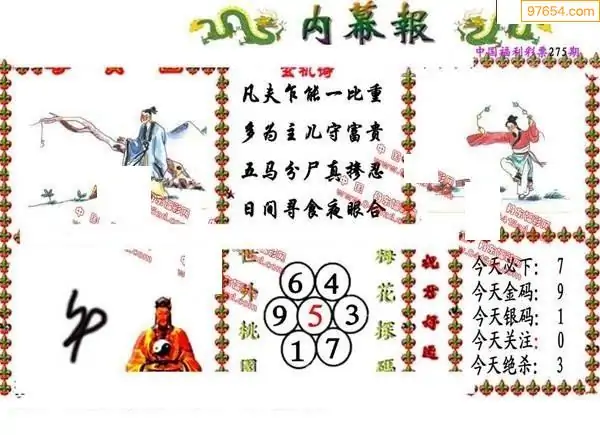 97654.com
内幕報
中国福利彩票275期
玄机诗
凡夫乍能一比重
多为主儿守富贵
五马分尸真掺忍
日间寻食夜眼合
世外桃園
6 4
9 5 3
1 7
梅花探码
祝君好运
今天必下: 7
今天金码: 9
今天银码: 1
今天关注: 0
今天绝杀: 3